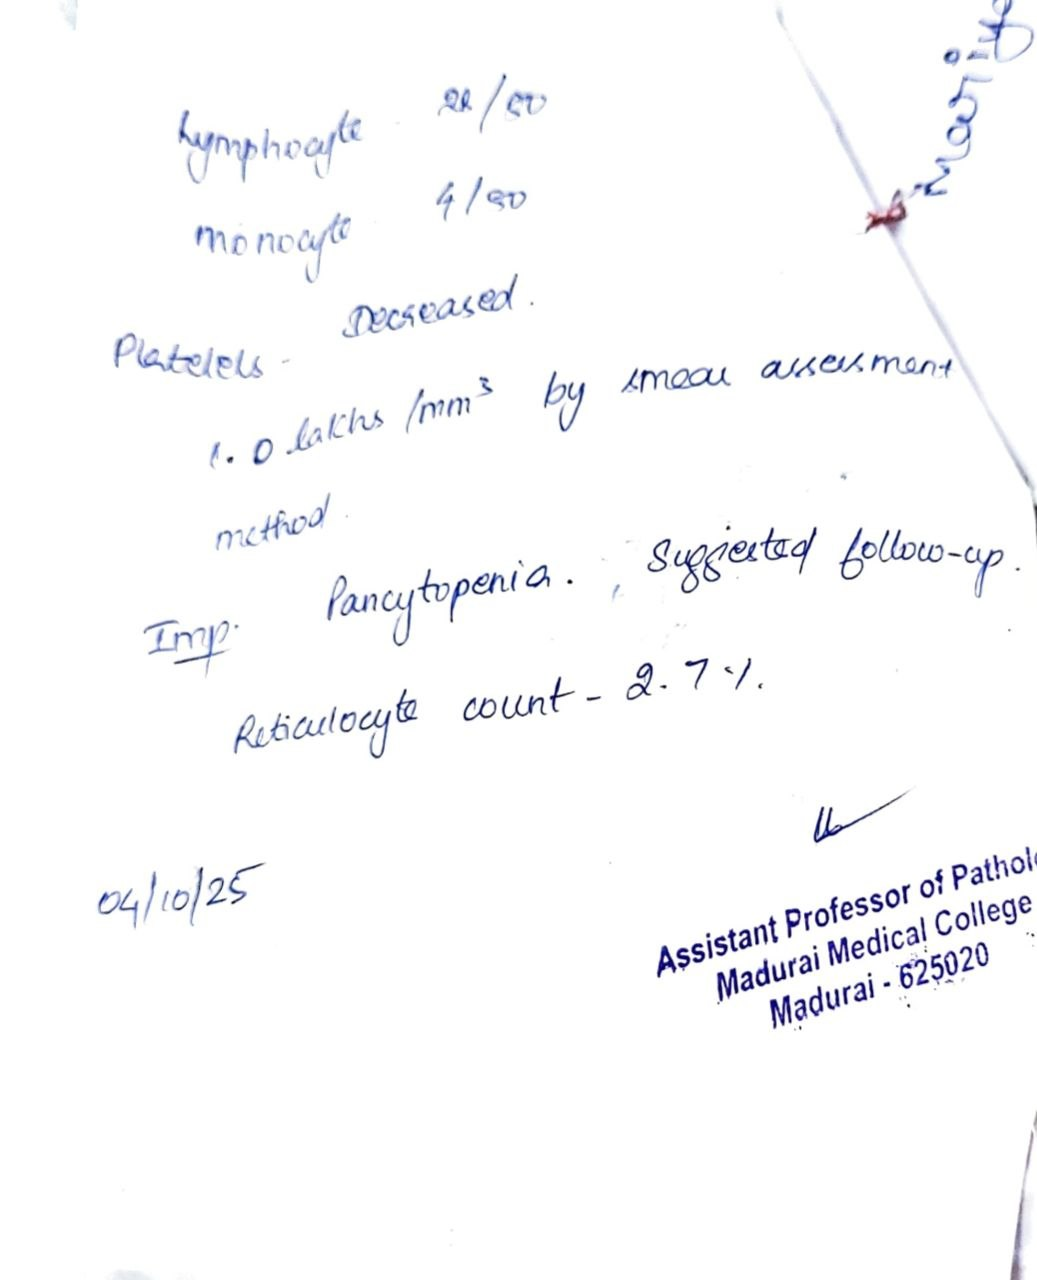 Lymphocyte - 22/50
monocyte 4/50
Platelets - Decreased.
1.0 lakhs/mm³ by smear assessment
method.
Imp. Pancytopenia. , Suggested follow-up.
Reticulocyte count - 2.7 %.
04/10/25
Assistant Professor of Pathol
Madurai Medical College
Madurai - 625020